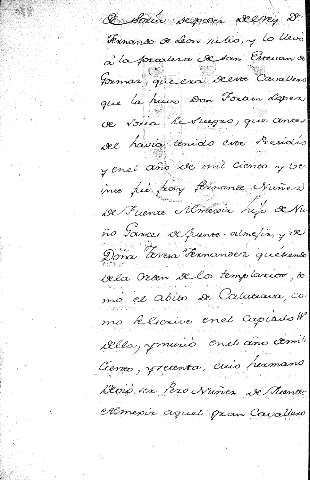 de Soria despues del Rey Dn
Fernando de Leon su tio, y lo llevó
á la fortaleza de San Estevan de
Gormaz, que era de este Cavallero
que la huvo Don Fortun Lopez
de Soria su Suegro, que antes
del havia tenido este Presidio
y en el año de mil ciento y ve
inte fué frey Fernando Nuñez
de Fuente Almexir hijo de Nu
ño Garces de fuente-almexir, y de
Doña Teresa Fernandez que siendo
de la Orden de los templarios, to
mó el abito de Calatrava, co
mo se escrive en el Capitulo
della, y murió en el año de mil
ciento, y setenta, cuio hermano
Pero Nuñez de Fuente
Almexir aquel gran Cavallero